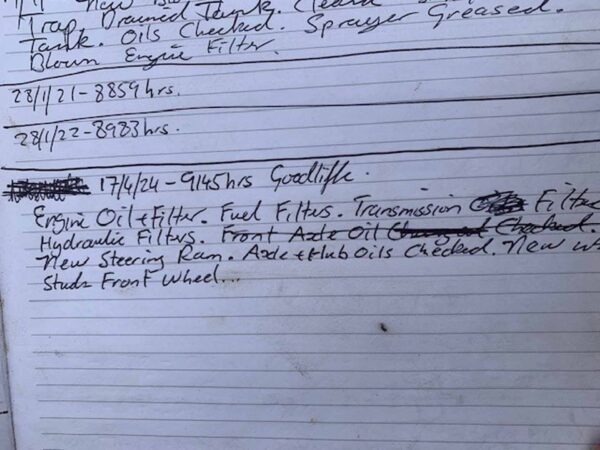 Trap, Drained Tank. Clean
Tank. Oils Checked. Sprayer Greased.
Blown Engine Filter.
28/1/21 - 8859hrs.
28/1/22 - 8983hrs.
17/4/24 - 9145hrs Goodliffe.
Engine Oil + Filter. Fuel Filters. Transmission Filter
Hydraulic Filters. Front Axle Oil Changed Checked.
New Steering Ram. Axle + Hub Oils Checked. New
Studs Front Wheel...